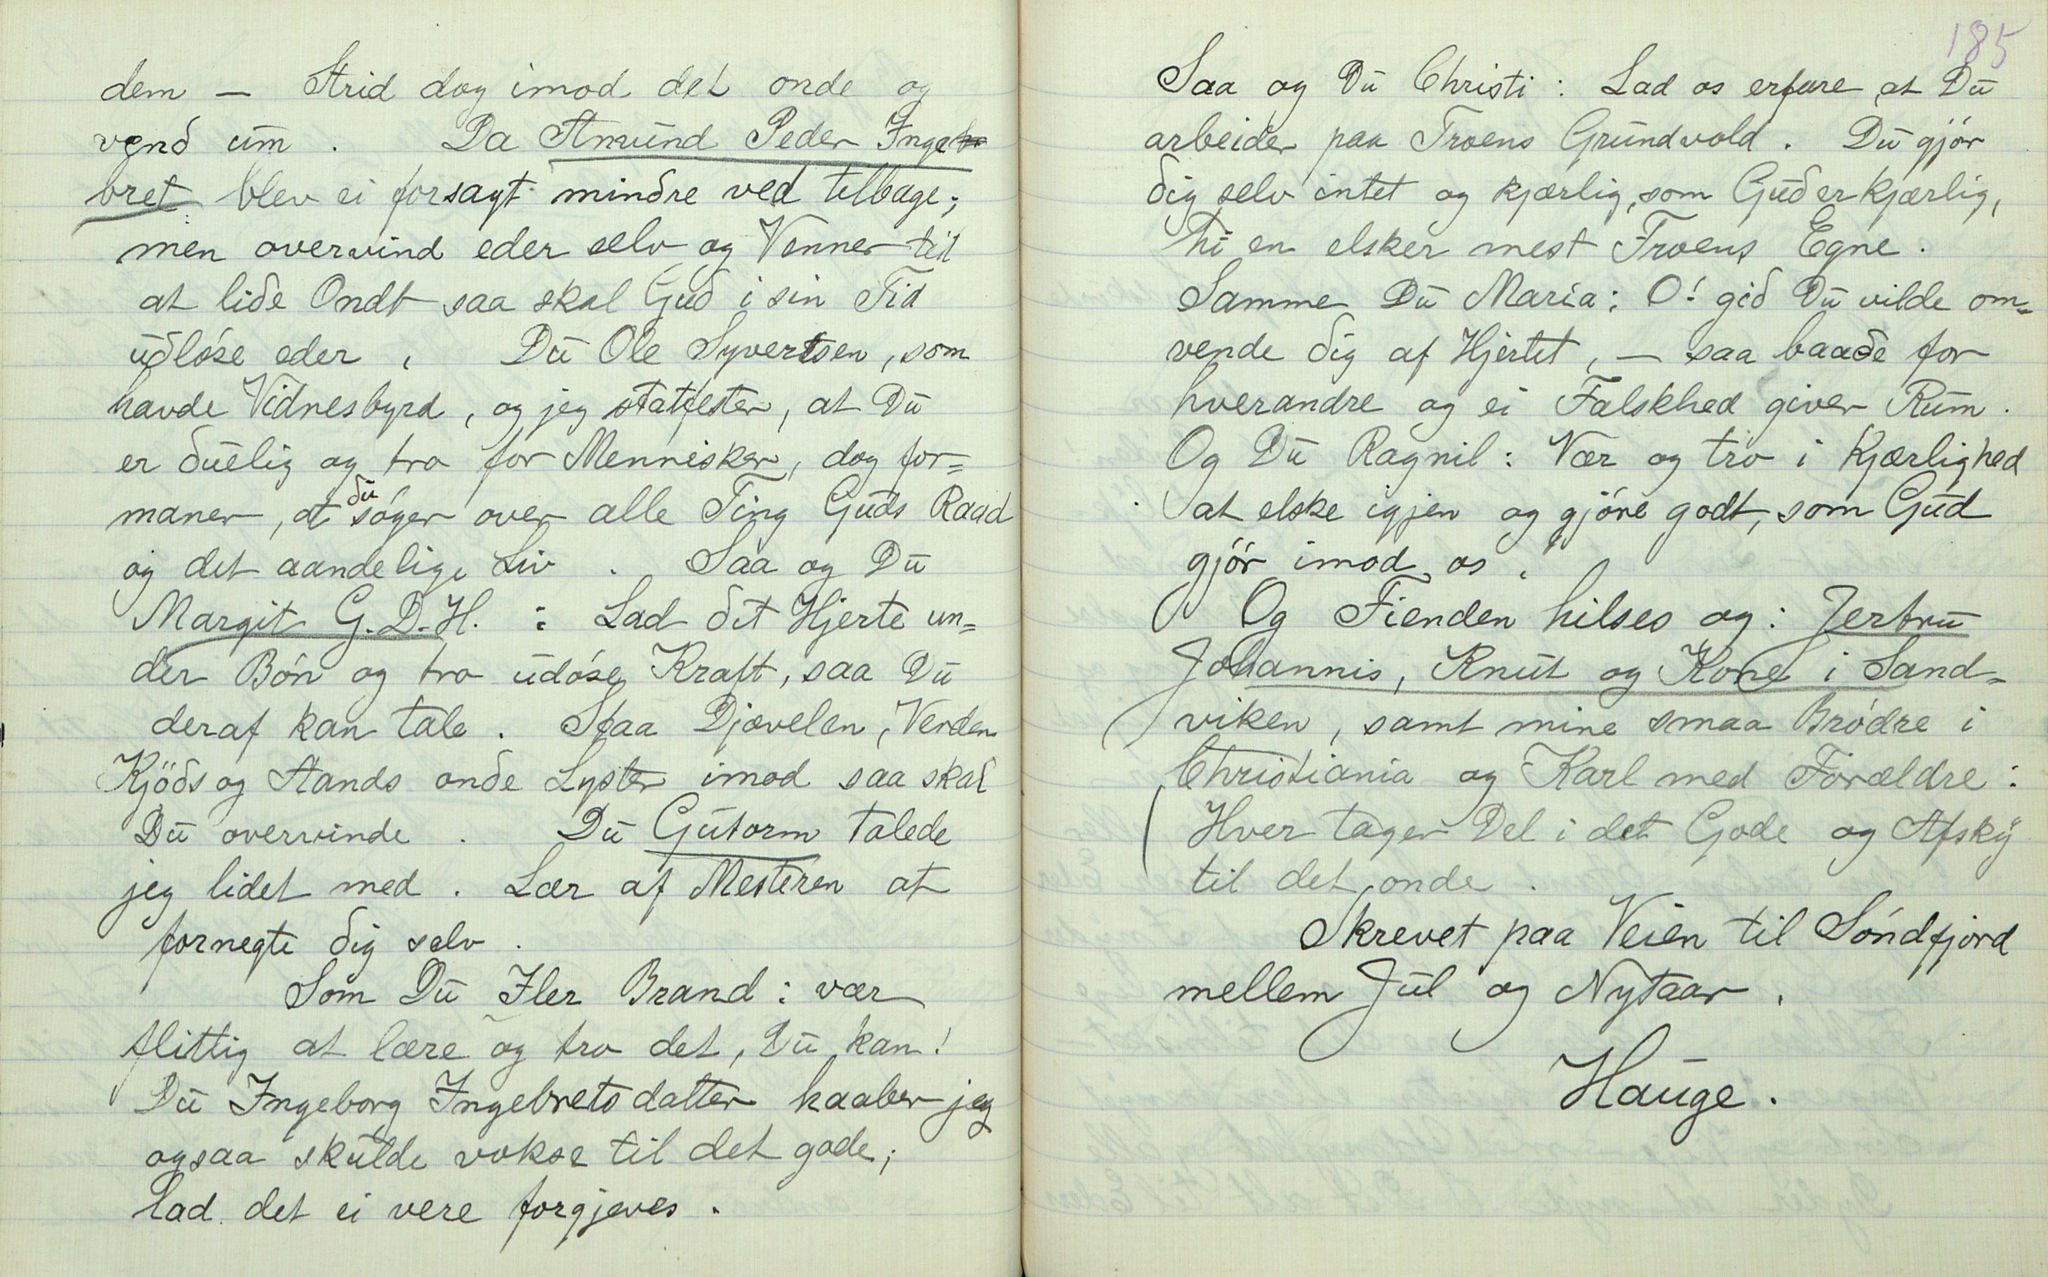 dem — Strid dog imod det onde og
vend um . Da Amund Peder Inge
bret blev ei forsagt mindre ved tilbage;
men overvind eder selv og Venner til
at lide Ondt saa skal Gud i sin Tid
udløse eder , Du Ole Syvertsen, som
havde Vidnesbyrd, og jeg statfester, at Du
er duelig og tro for Mennisker, dog for=
maner, at du søger over alle Ting Guds Raad
og det aandelige Liv . Saa og Du
Margit G. D. H. : Lad dit Hjerte un=
der Bøn og tro udøse Kraft, saa Du
deraf kan tale . Staa Djævelen, Verden
Kjöds og Aands onde Lyster imod saa skal
Du overvinde . Du Gutorm talede
jeg lidet med . Lær af Mesteren at
fornegte dig selv .
Som Du Iler Brand : vær
flittig at lære og tro det, Du kan!
Du Ingeborg Ingebretsdatter haaber jeg
ogsaa skulde vokse til det gode;
lad det ei vere forgjeves .
185
Saa og Du Christi : Lad os erfare at Du
arbeider paa Troens Grundvold . Du gjør
dig selv intet og kjærlig, som Gud er kjærlig,
hi en elsker mest Troens Egne .
Samme Du Maria : O! gid Du vilde om=
vende dig af Hjertet, — saa baade for
hverandre og ei Falskhed giver Rum .
Og Du Ragnil : Vær og tro i Kjærlighed
at elske igjen og gjøre godt, som Gud
gjør imod os .
Og Fienden hilses og : Jertru
Johannis, Knut og Kone i Sand=
viken, samt mine smaa Brødre i
Christiania og Karl med Forældre :
Hver tager Del i det Gode og Afsky
til det onde .
Skrevet paa Veien til Søndfjord
mellem Jul og Nytaar .
Hauge .